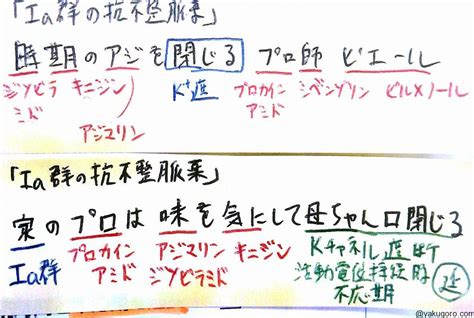 「Ia群の抗不整脈薬」
時期のアジを閉じる プロ師 ピエール
ジソピラミド キニジン アジマリン K⁺遮 プロカインアミド シベンゾリン ピルメノール
「Ia群の抗不整脈薬」
家のプロは味を気にして母ちゃん口閉じる
Ia群 プロカインアミド アジマリン ジソピラミド キニジン Kチャネル遮断
活動電位持続時
不応期 延
@yakugoro.com